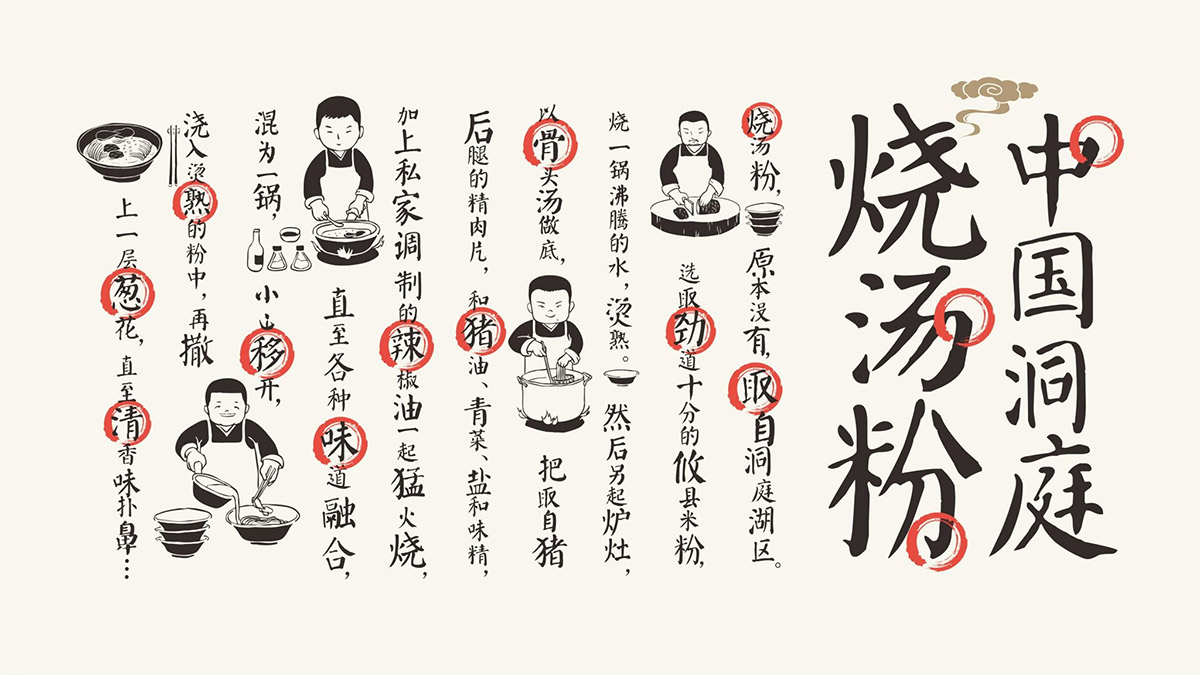 中国洞庭
烧汤粉
烧汤粉，原本没有，取自洞庭湖区。
选取劲道十分的攸县米粉，
烧一锅沸腾的水，烫熟。然后另起炉灶，
以骨头汤做底，把取自猪
后腿的精肉片，和猪油、青菜、盐和味精，
加上私家调制的辣椒油一起猛火烧，
直至各种味道融合，
混为一锅，小心移开，
浇入烫熟的粉中，再撒
上一层葱花，直至清香味扑鼻…